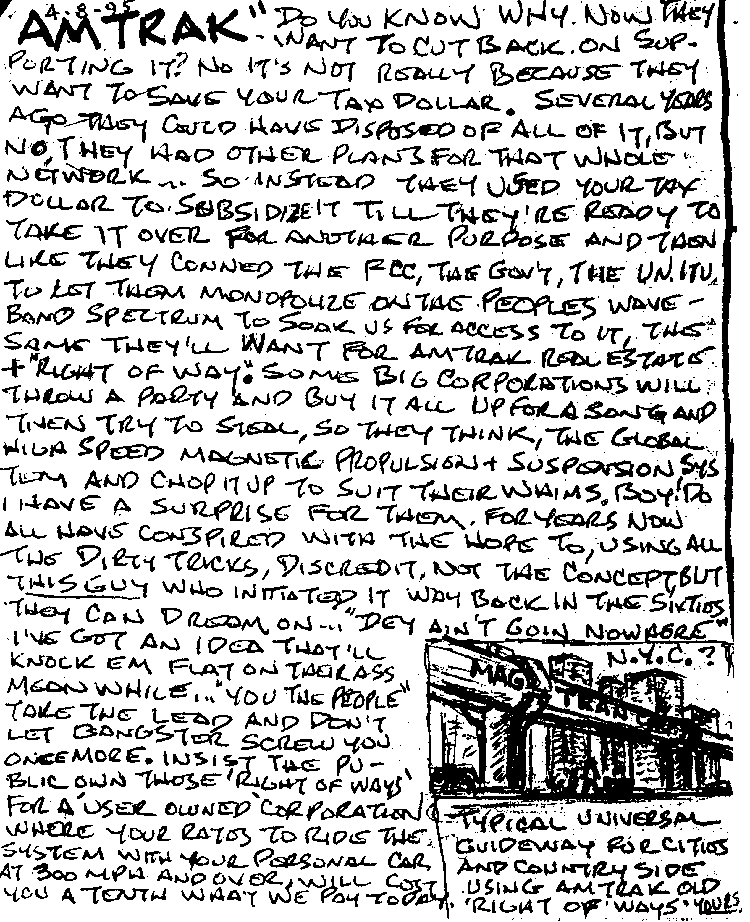 4-8-95
AMTRAK" DO YOU KNOW WHY. NOW THEY
WANT TO CUT BACK ON SUP-
PORTING IT? NO IT'S NOT REALLY BECAUSE THEY
WANT TO SAVE YOUR TAX DOLLAR. SEVERAL YEARS
AGO THEY COULD HAVE DISPOSED OF ALL OF IT, BUT
NO, THEY HAD OTHER PLANS FOR THAT WHOLE
NETWORK... SO INSTEAD THEY USED YOUR TAX
DOLLAR TO SUBSIDIZE IT TILL THEY'RE READY TO
TAKE IT OVER FOR ANOTHER PURPOSE AND THEN
LIKE THEY CONNED THE FCC, THE GOV'T, THE UN. ITU.
TO LET THEM MONOPOLIZE ON THE PEOPLES WAVE-
BAND SPECTRUM TO SOAK US FOR ACCESS TO IT, THE
SAME THEY'LL WANT FOR AMTRAK REAL ESTATE
+ "RIGHT OF WAY". SOME BIG CORPORATIONS WILL
THROW A PARTY AND BUY IT ALL UP FOR A SONG AND
THEN TRY TO STEAL, SO THEY THINK, THE GLOBAL
HIGH SPEED MAGNETIC PROPULSION + SUSPENSION SYS
TEM AND CHOP IT UP TO SUIT THEIR WHIMS. BOY! DO
I HAVE A SURPRISE FOR THEM. FOR YEARS NOW
ALL HAVE CONSPIRED WITH THE HOPE TO, USING ALL
THE DIRTY TRICKS, DISCREDIT, NOT THE CONCEPT, BUT
THIS GUY WHO INITIATED IT WAY BACK IN THE SIXTIES
THEY CAN DREAM ON... "DEY AIN'T GOIN NOWHERE"
I'VE GOT AN IDEA THAT'LL
KNOCK EM FLAT ON THEIR ASS
MEAN WHILE... "YOU THE PEOPLE"
TAKE THE LEAD AND DON'T
LET GANGSTER SCREW YOU
ONCE MORE. INSIST THE PU-
BLIC OWN THOSE 'RIGHT OF WAYS'
FOR A 'USER OWNED' CORPORATION
WHERE YOUR RATES TO RIDE THE
SYSTEM WITH YOUR PERSONAL CAR
AT 300 MPH AND OVER, WILL COST
YOU A TENTH WHAT WE PAY TODAY.
N.Y.C.?
MAG TRAN
TYPICAL UNIVERSAL
GUIDEWAY FOR CITIES
AND COUNTRY SIDE
USING AMTRAK OLD
'RIGHT OF WAYS' YOURS